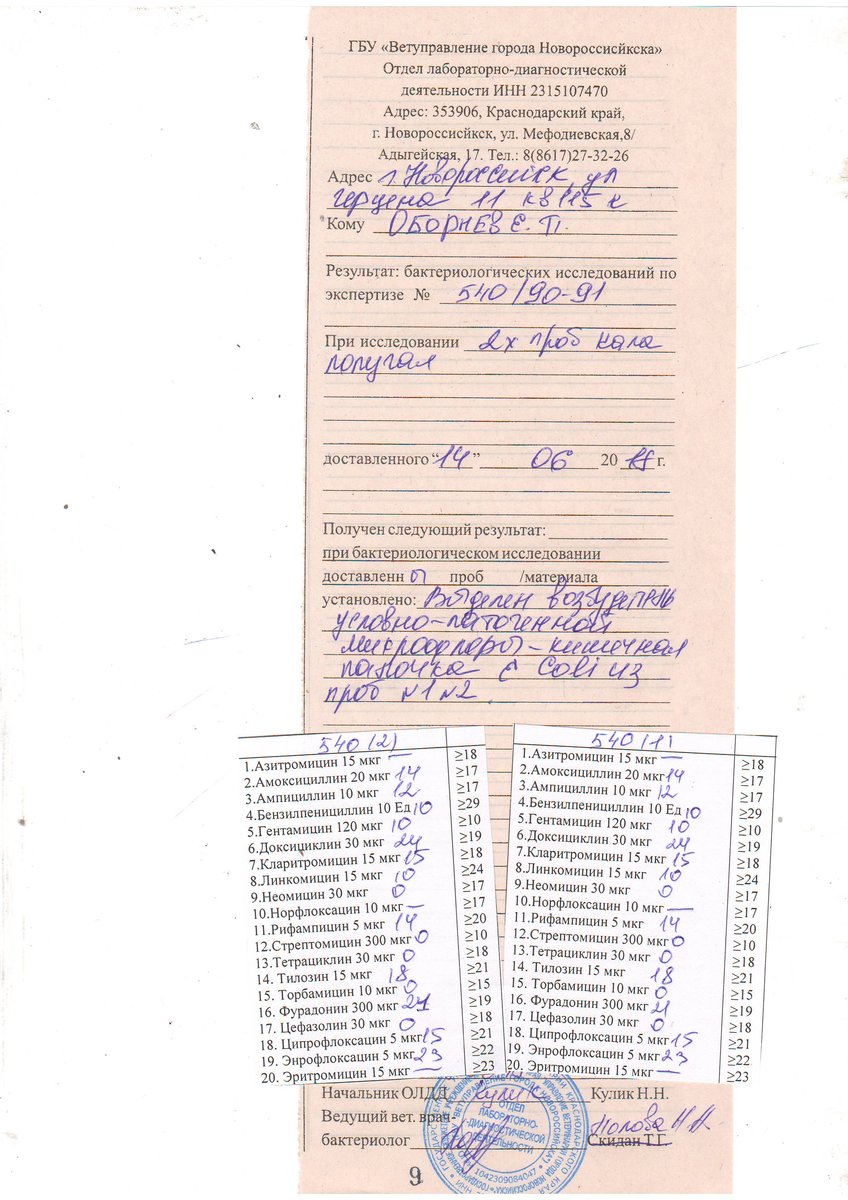 ГБУ «Ветуправление города Новороссисйкска»
Отдел лабораторно-диагностической
деятельности ИНН 2315107470
Адрес: 353906, Краснодарский край,
г. Новороссисйкск, ул. Мефодиевская,8/
Адыгейская, 17. Тел.: 8(8617)27-32-26
Адрес г. Новороссийск, ул
Герцена 11 кв 115 к
Кому ОБОРНЕВ Е. П.
Результат: бактериологических исследований по
экспертизе № 540/90-91
При исследовании 2х проб кала
попугая
доставленного “14” 06 20 г.
Получен следующий результат:
при бактериологическом исследовании
доставленн ы проб /материала
установлено: Выделен возбудитель
условно-патогенной
микрофлоры - кишечная
палочка E Coli из
проб №1 №2
540 (2)
1.Азитромицин 15 мкг — ≥18
2.Амоксициллин 20 мкг 14 ≥17
3.Ампициллин 10 мкг 12 ≥17
4.Бензилпенициллин 10 Ед 10 ≥29
5.Гентамицин 120 мкг 10 ≥10
6.Доксициклин 30 мкг 24 ≥19
7.Кларитромицин 15 мкг 15 ≥18
8.Линкомицин 15 мкг 10 ≥24
9.Неомицин 30 мкг 0 ≥17
10.Норфлоксацин 10 мкг — ≥17
11.Рифампицин 5 мкг 14 ≥20
12.Стрептомицин 300 мкг 0 ≥10
13.Тетрациклин 30 мкг 0 ≥18
14. Тилозин 15 мкг 18 ≥21
15. Торбамицин 10 мкг 0 ≥15
16. Фурадонин 300 мкг 21 ≥19
17. Цефазолин 30 мкг 0 ≥18
18. Ципрофлоксацин 5 мкг 15 ≥21
19. Энрофлоксацин 5 мкг 23 ≥22
20. Эритромицин 15 мкг — ≥23
540 (1)
1.Азитромицин 15 мкг — ≥18
2.Амоксициллин 20 мкг 14 ≥17
3.Ампициллин 10 мкг 12 ≥17
4.Бензилпенициллин 10 Ед 10 ≥29
5.Гентамицин 120 мкг 10 ≥10
6.Доксициклин 30 мкг 24 ≥19
7.Кларитромицин 15 мкг 15 ≥18
8.Линкомицин 15 мкг 10 ≥24
9.Неомицин 30 мкг 0 ≥17
10.Норфлоксацин 10 мкг — ≥17
11.Рифампицин 5 мкг 14 ≥20
12.Стрептомицин 300 мкг 0 ≥10
13.Тетрациклин 30 мкг 0 ≥18
14. Тилозин 15 мкг 18 ≥21
15. Торбамицин 10 мкг 0 ≥15
16. Фурадонин 300 мкг 21 ≥19
17. Цефазолин 30 мкг 0 ≥18
18. Ципрофлоксацин 5 мкг 15 ≥21
19. Энрофлоксацин 5 мкг 23 ≥22
20. Эритромицин 15 мкг — ≥23
Начальник ОЛДД Кулик Кулик Н.Н.
Ведущий вет. врач
бактериолог Попова Н.Н.
Скидан Т.Г.
ОТДЕЛ
ЛАБОРАТОРНО-
ДИАГНОСТИЧЕСКОЙ
ДЕЯТЕЛЬНОСТИ
1042309084047
9